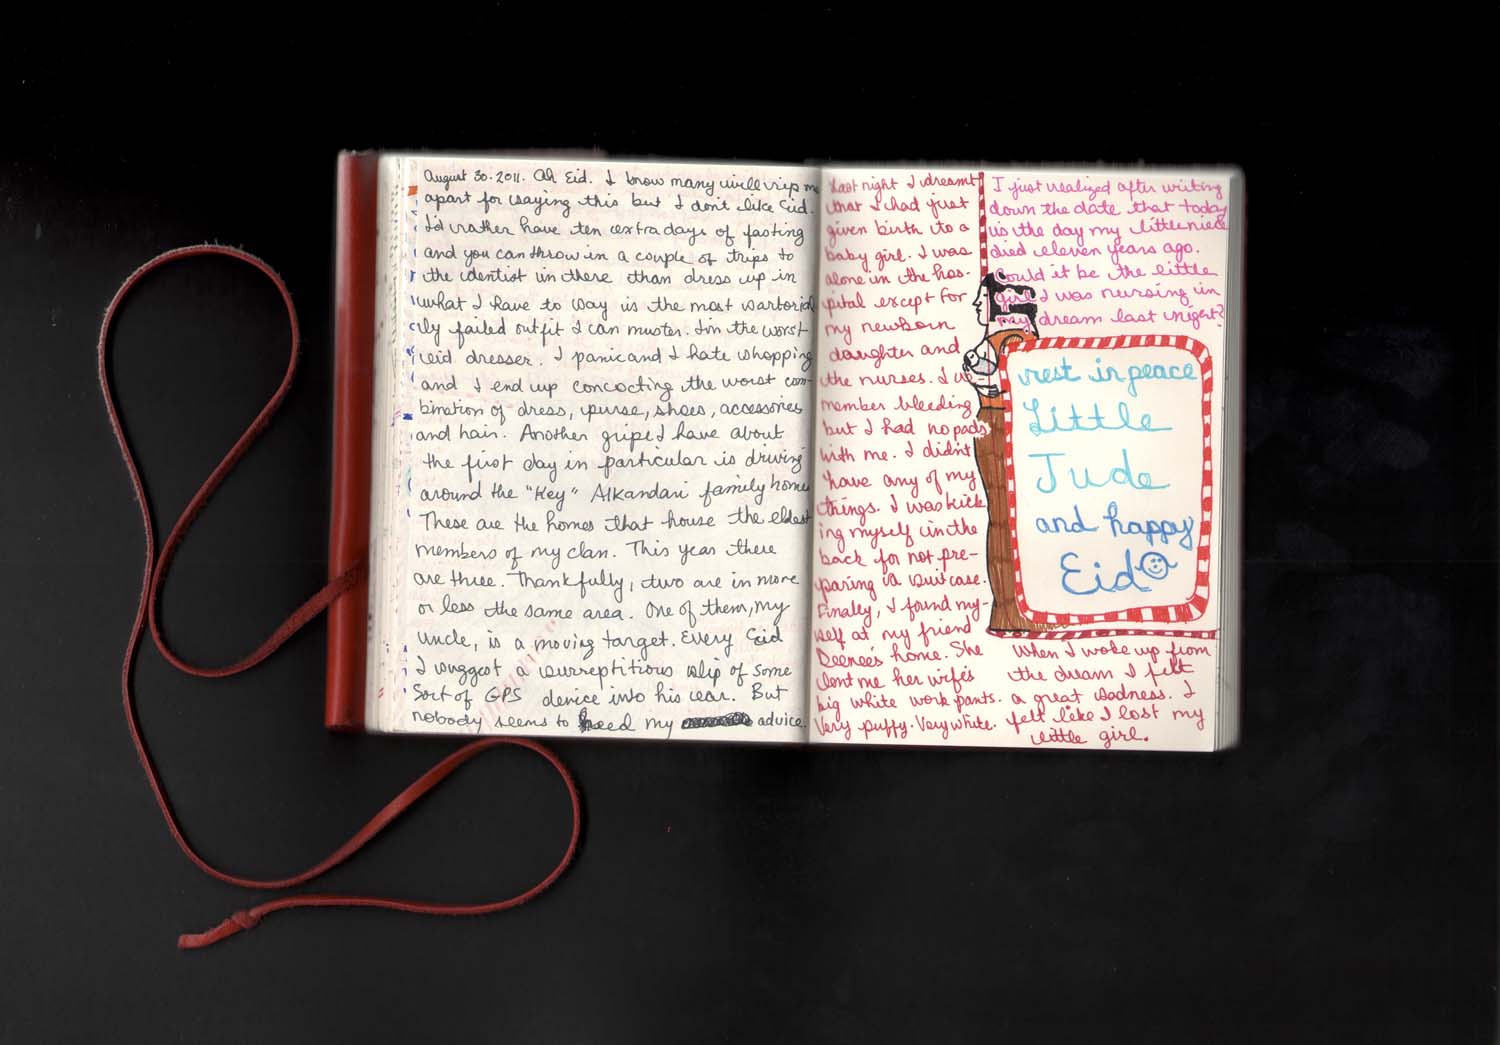 August 30. 2011. Ah Eid. I know many will rip me
apart for saying this but I don't like Eid.
I'd rather have ten extra days of fasting
and you can throw in a couple of trips to
the dentist in there than dress up in
what I have to say is the most sartorial
ly failed outfit I can muster. I'm the worst
eid dresser. I panic and I hate shopping
and I end up concocting the worst com-
bination of dress, purse, shoes, accessories
and hair. Another gripe I have about
the first day in particular is driving
around the "Key" Alkandari family homes
These are the homes that house the eldest
members of my clan. This year there
are three. Thankfully, two are in more
or less the same area. One of them, my
uncle, is a moving target. Every Eid
I suggest a surreptitious slip of some
sort of GPS device into his car. But
nobody seems to heed my advice.
Last night I dreamt
that I had just
given birth to a
baby girl. I was
alone in the hos-
pital except for
my newborn
daughter and
the nurses. I re
member bleeding
but I had no pads
with me. I didn't
have any of my
things. I was kick
ing myself in the
back for not pre-
paring a suitcase.
Finally, I found my-
self at my friend
Deenee's home. She
lent me her wife's
big white work pants.
Very puffy. Very white.
When I woke up from
the dream I felt
a great sadness. I
felt like I lost my
little girl.
I just realized after writing
down the date that today
is the day my little niece
died eleven years ago.
Could it be the little
girl I was nursing in
my dream last night?
rest in peace
Little
Jude
and happy
Eid